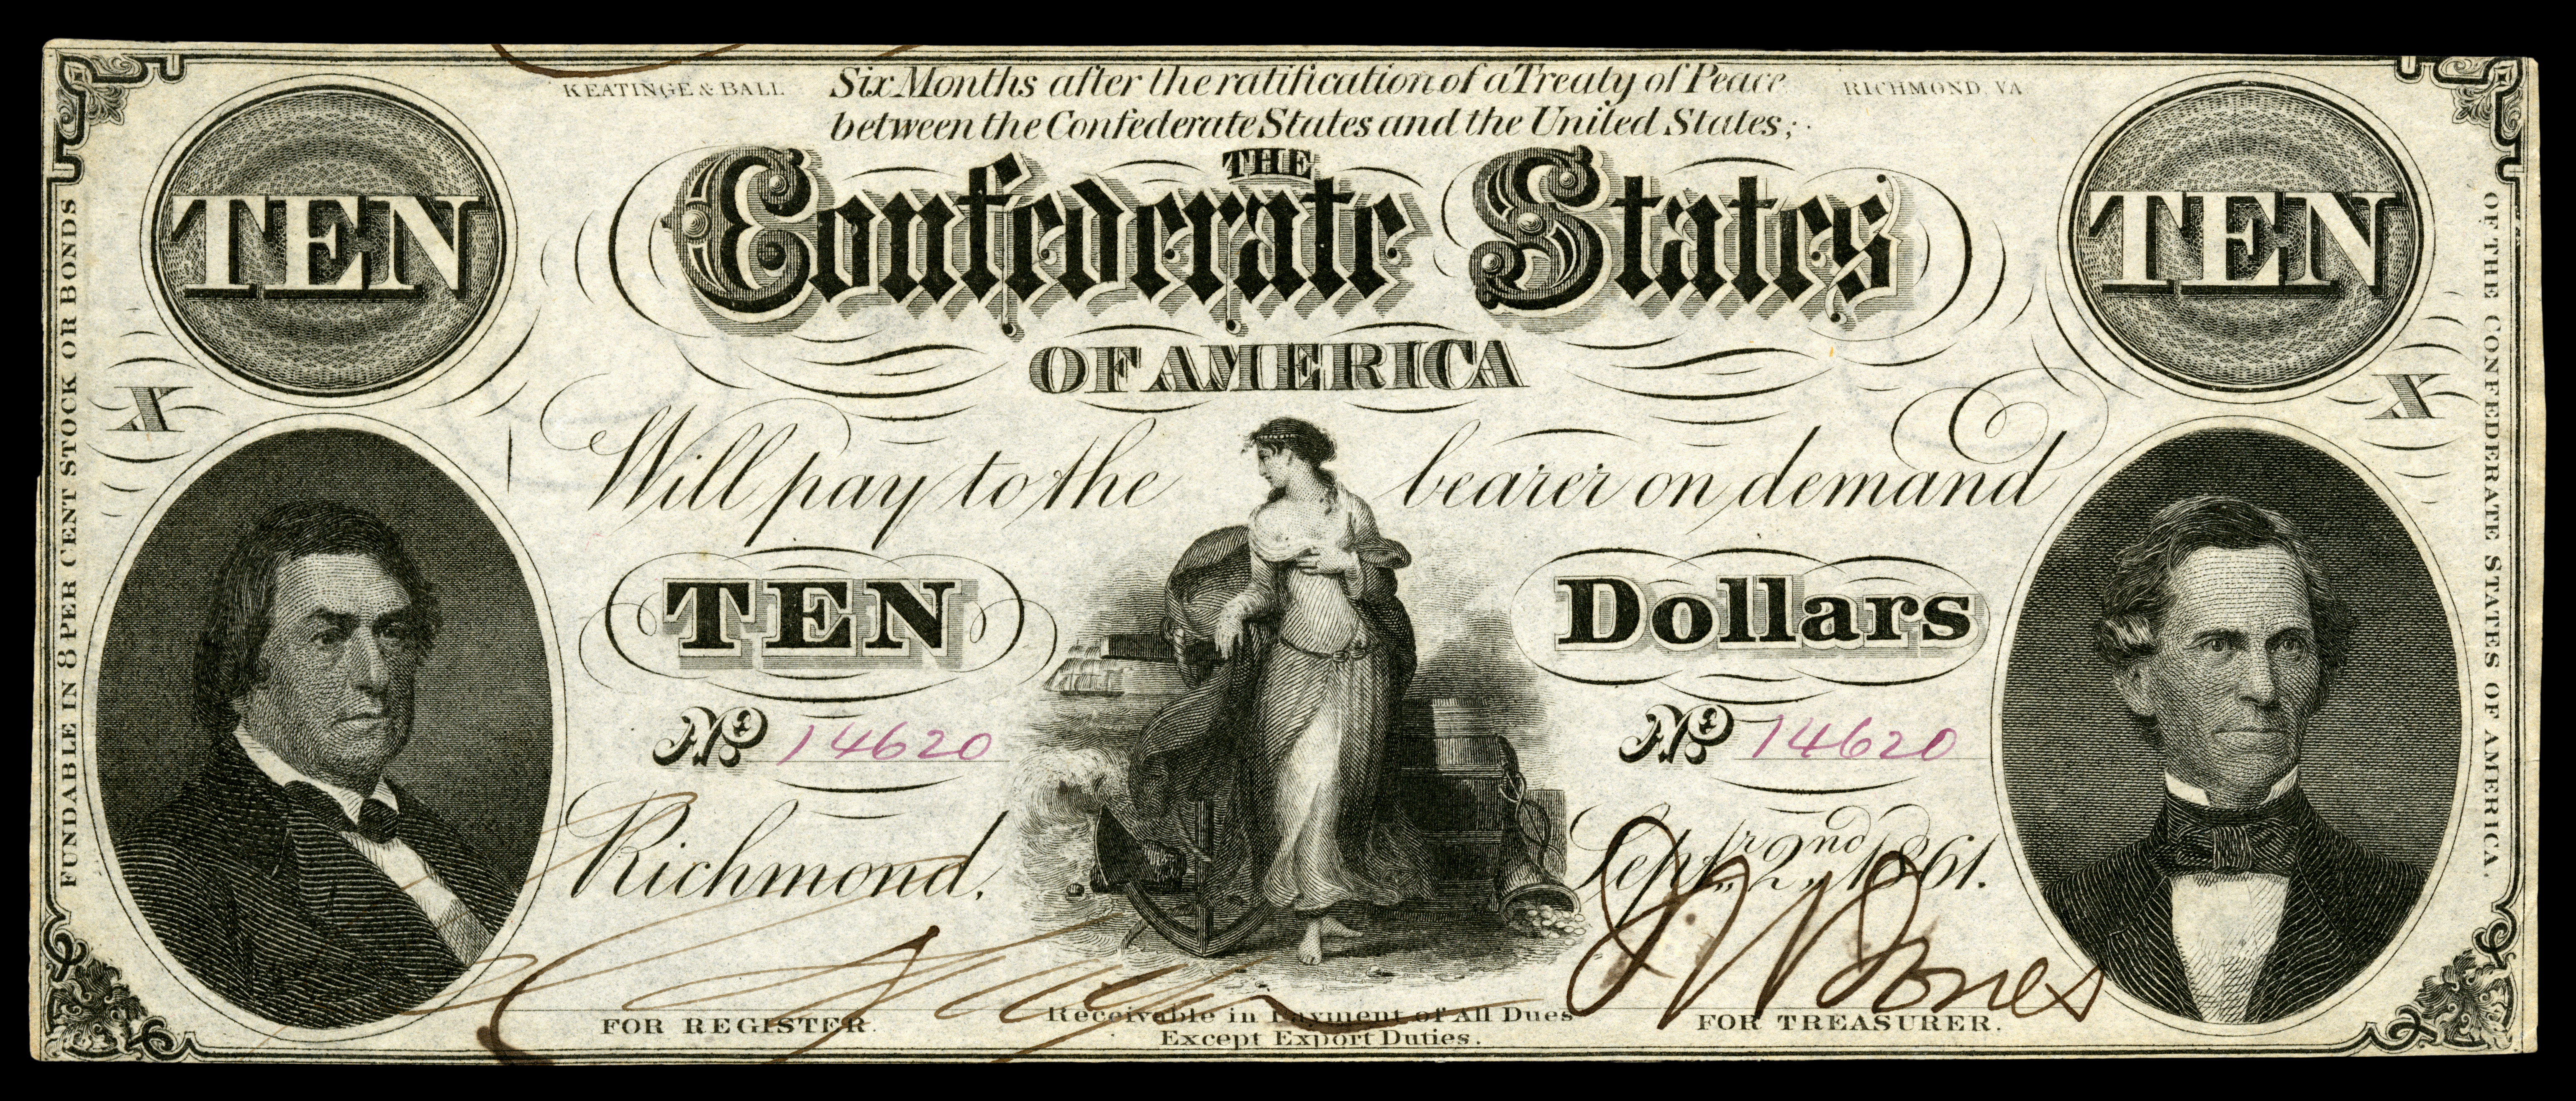 KEATINGE & BALL
Six Months after the ratification of a Treaty of Peace
RICHMOND, VA
between the Confederate States and the United States;
THE
TEN
Confederate States
TEN
OF AMERICA
X
X
Will pay to the bearer on demand
TEN Dollars
No. 14620
No. 14620
Richmond, Septr. 2nd, 1861.
FOR REGISTER.
Receivable in Payment of All Dues
Except Export Duties.
FOR TREASURER.
FUNDABLE IN 8 PER CENT STOCK OR BONDS
OF THE CONFEDERATE STATES OF AMERICA.